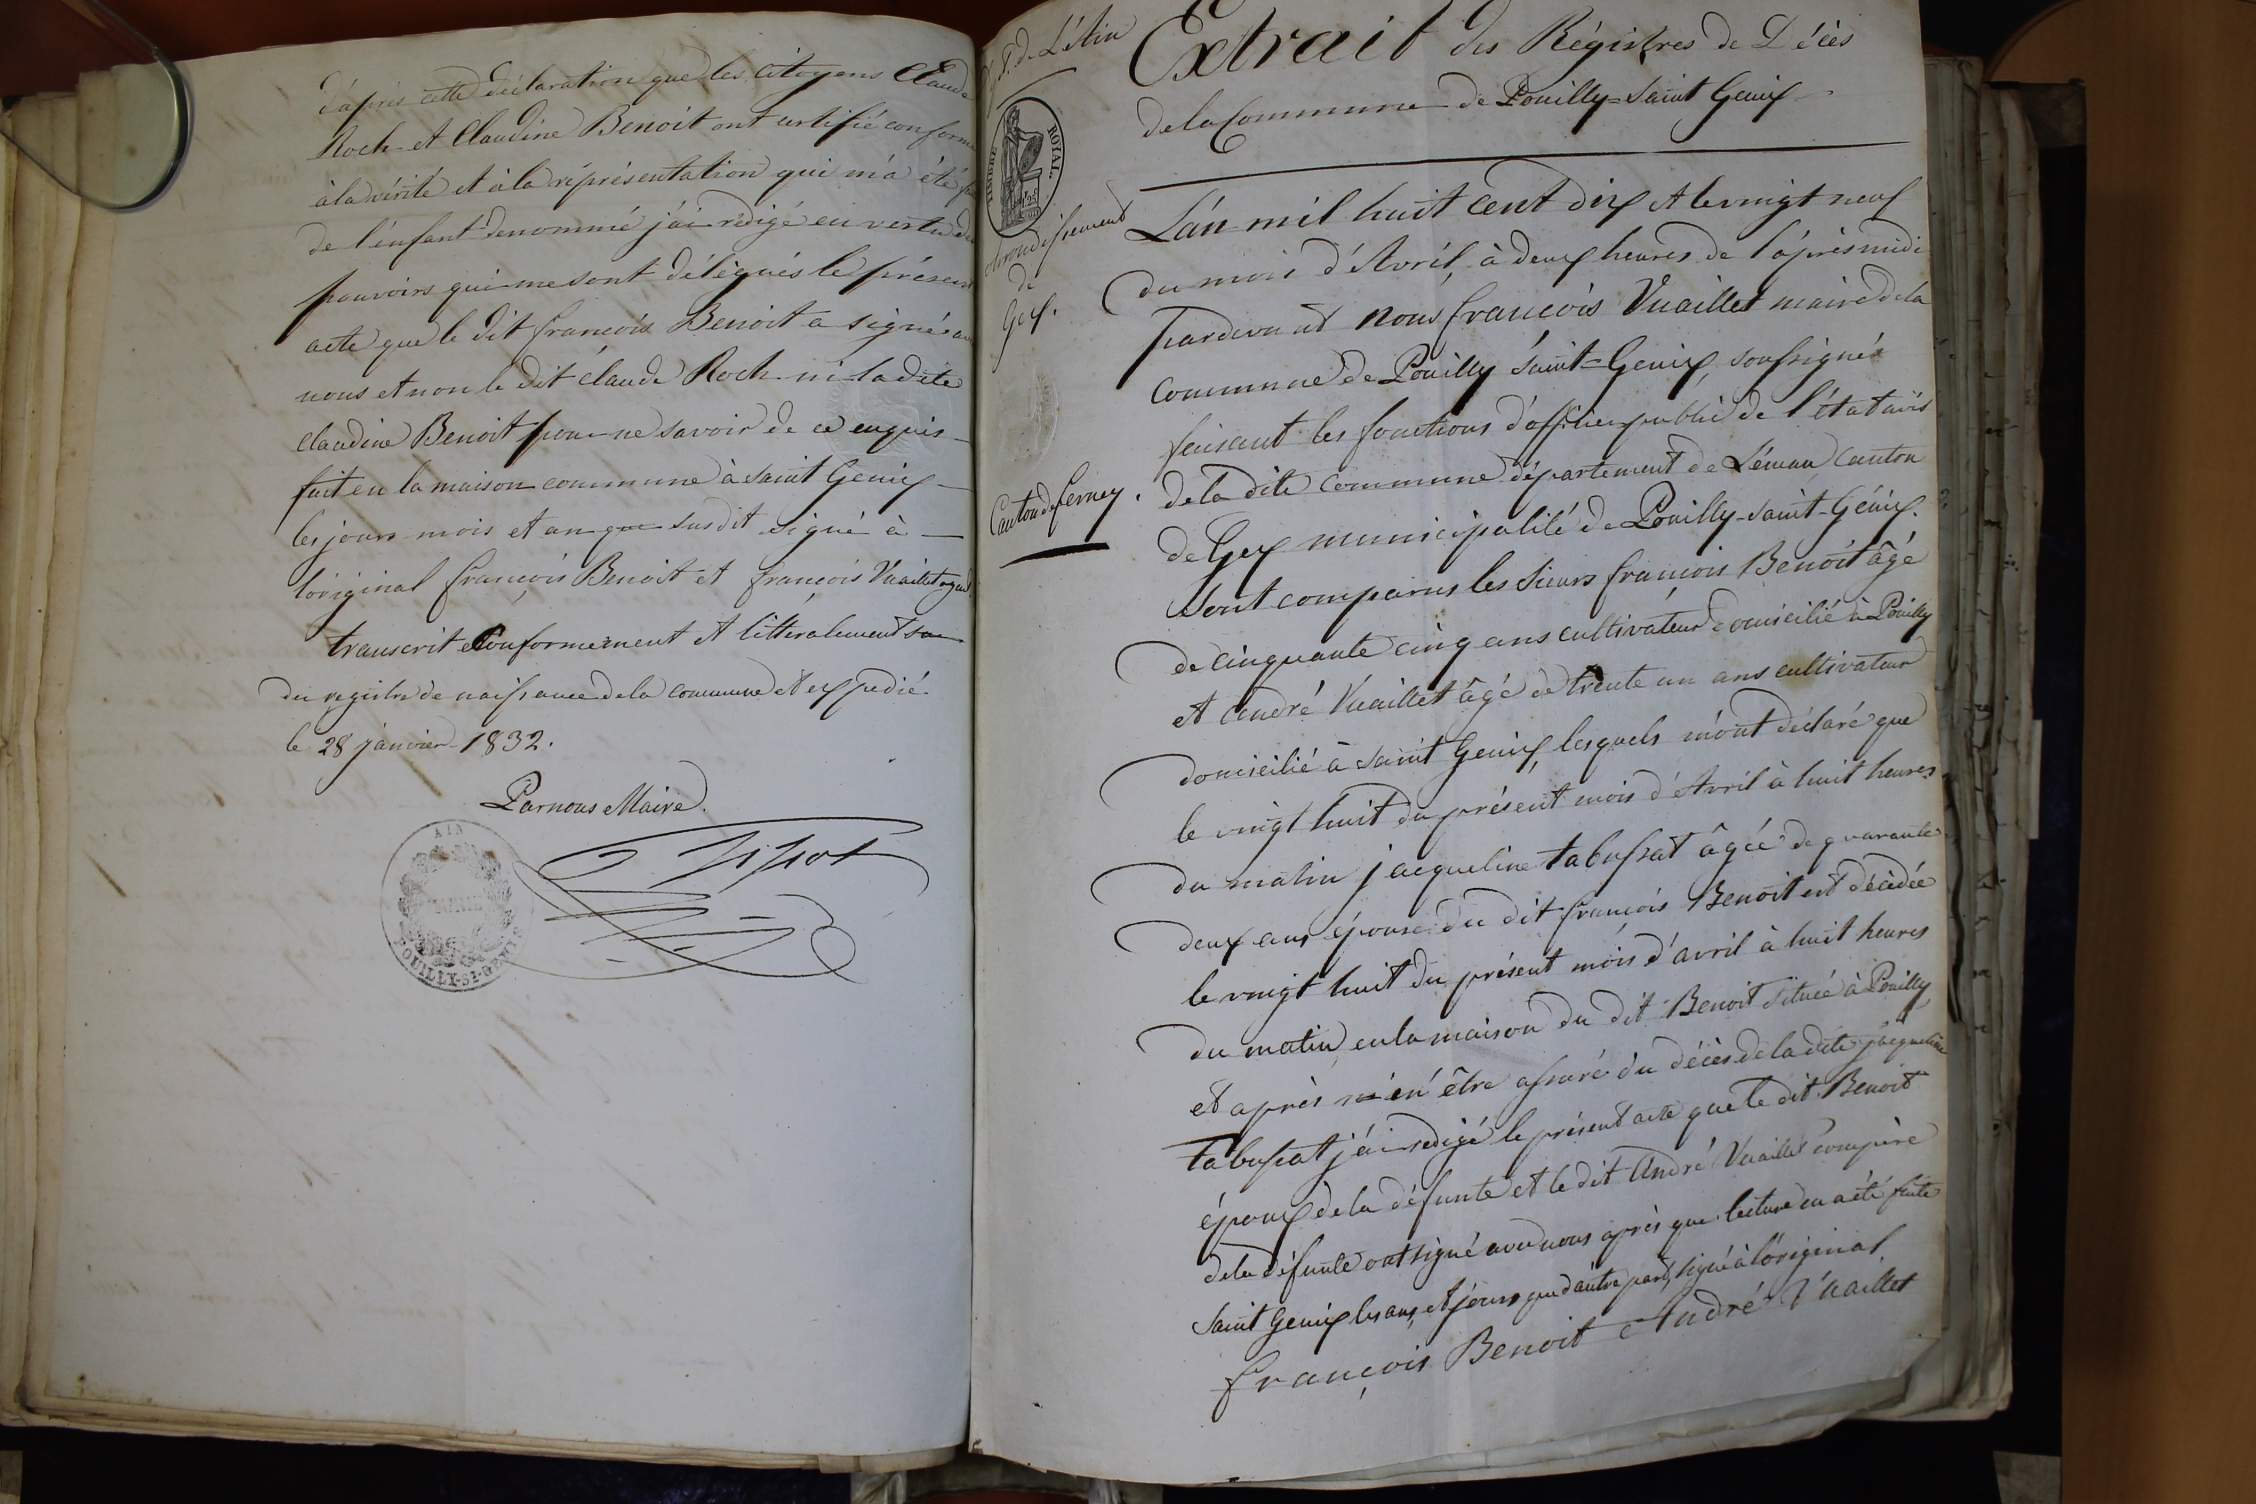 d'après cette déclaration que les citoyens Claude
Roch et Claudine Benoit ont certifié conforme
à la vérité et à la réprésentation qui m'a été
de l'enfant denommé j'ai redigé en vertu des
pouvoirs qui me sont délégués le présent
acte que le dit françois Benoit a signé avec
nous et non le dit claude Roch ni la dite
claudine Benoit pour ne savoir de ce enquis
fait en la maison commune à saint Genix
les jours mois et an que susdit signé à
l'original françois Benoit et françois Vuaillet
transcrit Conformement et littéralement
du registre de naissance de la commune et expedié
le 28 janvier 1832.
Par nous Maire.
AIN
MAIRIE
POUILLY-ST-GENIX
Dt. de L'Ain
TIMBRE ROYAL
Arrondissement
de
Gex.
Canton de ferney.
Extrait des Régistres de Décès
de la Commune de Pouilly=Saint Genix
L'an mil huit cent dix et le vingt neuf
du mois d'Avril, à deux heures de l'après midi
pardevant nous françois Vuaillet maire de la
commune de Pouilly saint=Genix, soussigné
feisant les fonctions d'officier public de l'état
de la dite commune département de Léman canton
de Gex municipalité de Pouilly-saint-Génix.
sont comparus les sieurs françois Benoit âgé
de cinquante cinq ans cultivateur domicilié à Pouilly
et andré Vuaillet âgé de trente un ans cultivateur
domicilié à saint Genix, lesquels m'ont déclaré que
le vingt huit du présent mois d'Avril à huit heures
du matin jacqueline tabussat âgée de quarante
deux ans épouse du dit françois Benoit est décédée
le vingt huit du présent mois d'avril à huit heures
du matin, en la maison du dit Benoit située à Pouilly
et après m'en être assuré du décès de la dite jacqueline
tabussat j'ai redigé le présent acte que le dit Benoit
époux de la défunte et le dit André Vuaillet compère
de la défunte ont signé avec nous après que lecture en a été faite
Saint Genix les ans et jours que d'autre part, signé à l'original
françois Benoit André Vuaillet